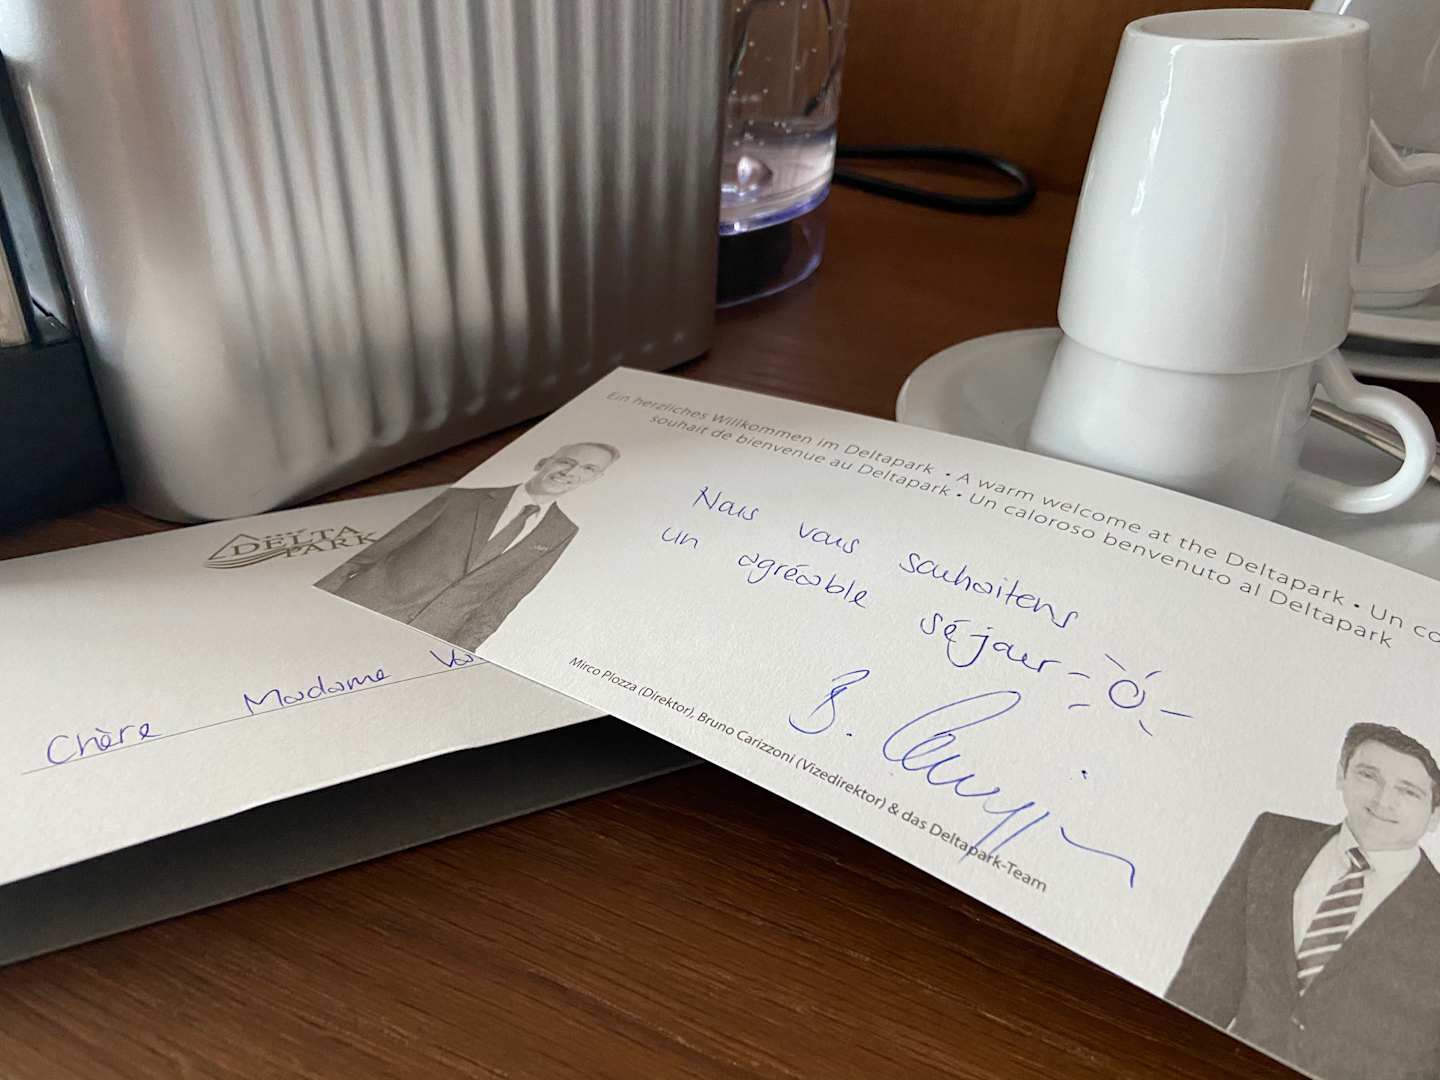 Ein herzliches Willkommen im Deltapark • A warm welcome at the Deltapark • Un
souhait de bienvenue au Deltapark • Un caloroso benvenuto al Deltapark
Nous vous souhaitons
un agréable séjour
B.
Mirco Plozza (Direktor), Bruno Carizzoni (Vizedirektor) & das Deltapark-Team
DELTA
PARK
Chère Madame